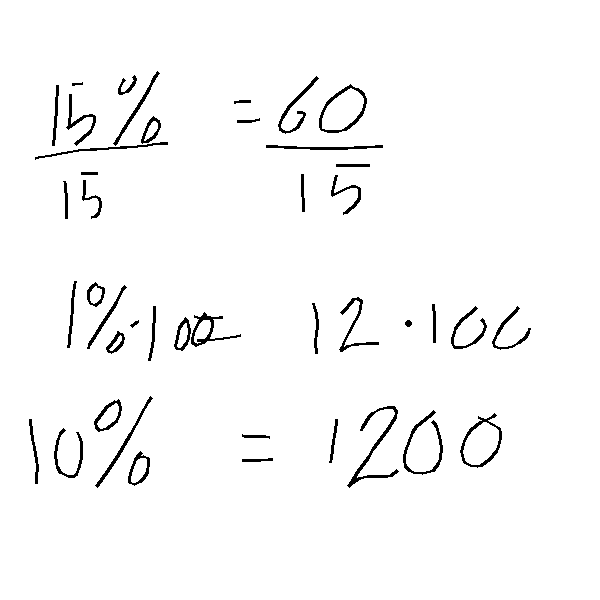 15% = 60
15 15
1%·100 = 12·100
10% = 1200